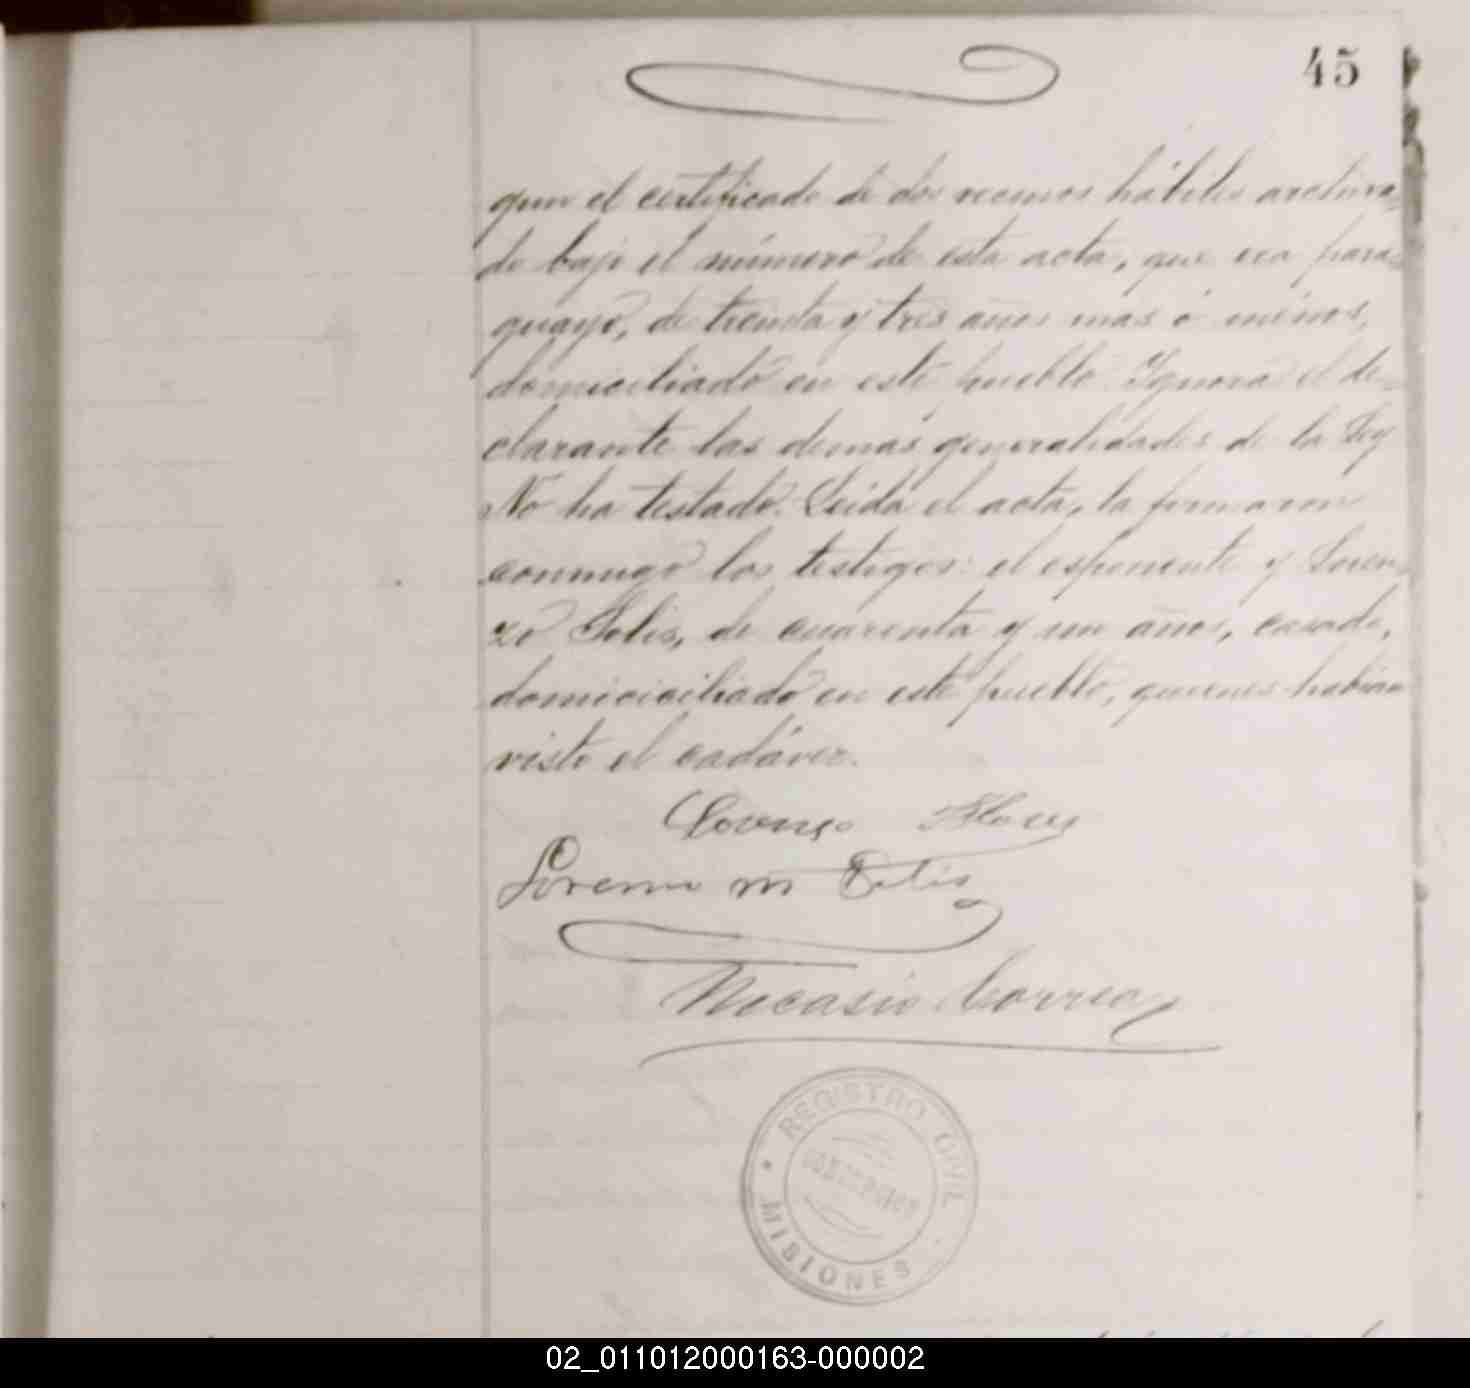 45
gun el certificado de dos vecinos hábiles archiva-
do bajo el número de esta acta, que era para-
guayo, de treinta y tres años mas ó ménos,
domiciliado en este pueblo. Ignora el de-
clarante las demás generalidades de la Ley
No ha testado. Leida el acta, la firmaron
conmigo los testigos: el esponente y Loren-
zo Solis, de cuarenta y un años, casado,
domiciciliado en este pueblo, quienes habian
visto el cadáver.
Lorenzo M Solis
Necasio Correa
REGISTRO CIVIL
CONCEPCION
MISIONES
02_011012000163-000002